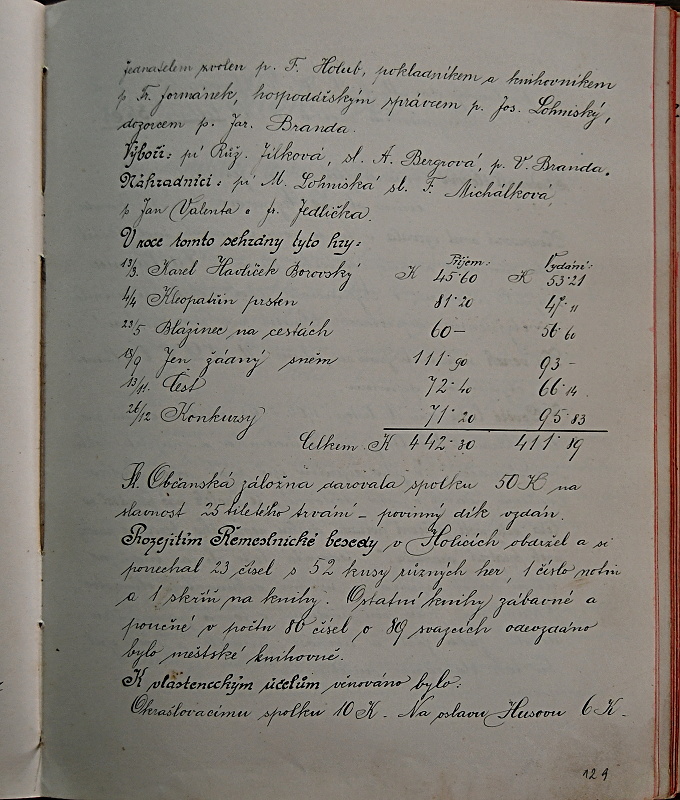 jednatelem zvolen p. F. Holub, pokladníkem a knihovníkem
p. Fr. Jormánek, hospodářským správcem p. Jos. Lohniský,
dozorcem p. Jar. Branda.
Výboři: pí Růž. Jílková, sl. A. Bergrová, p. V. Branda.
Náhradníci: pí M. Lohniská sl. F. Michálková,
p. Jan Valenta a fr. Jedlička.
V roce tomto sehrány tyto hry:
Příjem: Vydání:
13/3. Karel Havlíček Borovský K 45·60 K 53·21
4/4 Kleopatřin prsten 81·20 47·11
23/5 Blázinec na cestách 60– 56·60
18/9 Jen žádný sněm 111·90 93–
13/11. Čest 72·40 66·14
26/12 Konkursy 71·20 95·83
Celkem K 442·30 411·89
Sl. Občanská záložna darovala spolku 50 K na
slavnost 25tiletého trvání – povinný dík vzdán.
Rozejitím Řemeslnické besedy v Holicích obdržel a si
ponechal 23 čísel s 52 kusy různých her, 1 číslo notin
a 1 skříň na knihy. Ostatní knihy zábavné a
poučné v počtu 80 čísel o 89 svazcích odevzdáno
bylo městské knihovně.
K vlasteneckým účelům věnováno bylo:
Okrašlovacímu spolku 10 K. Na oslavu Husovu 6 K –
129